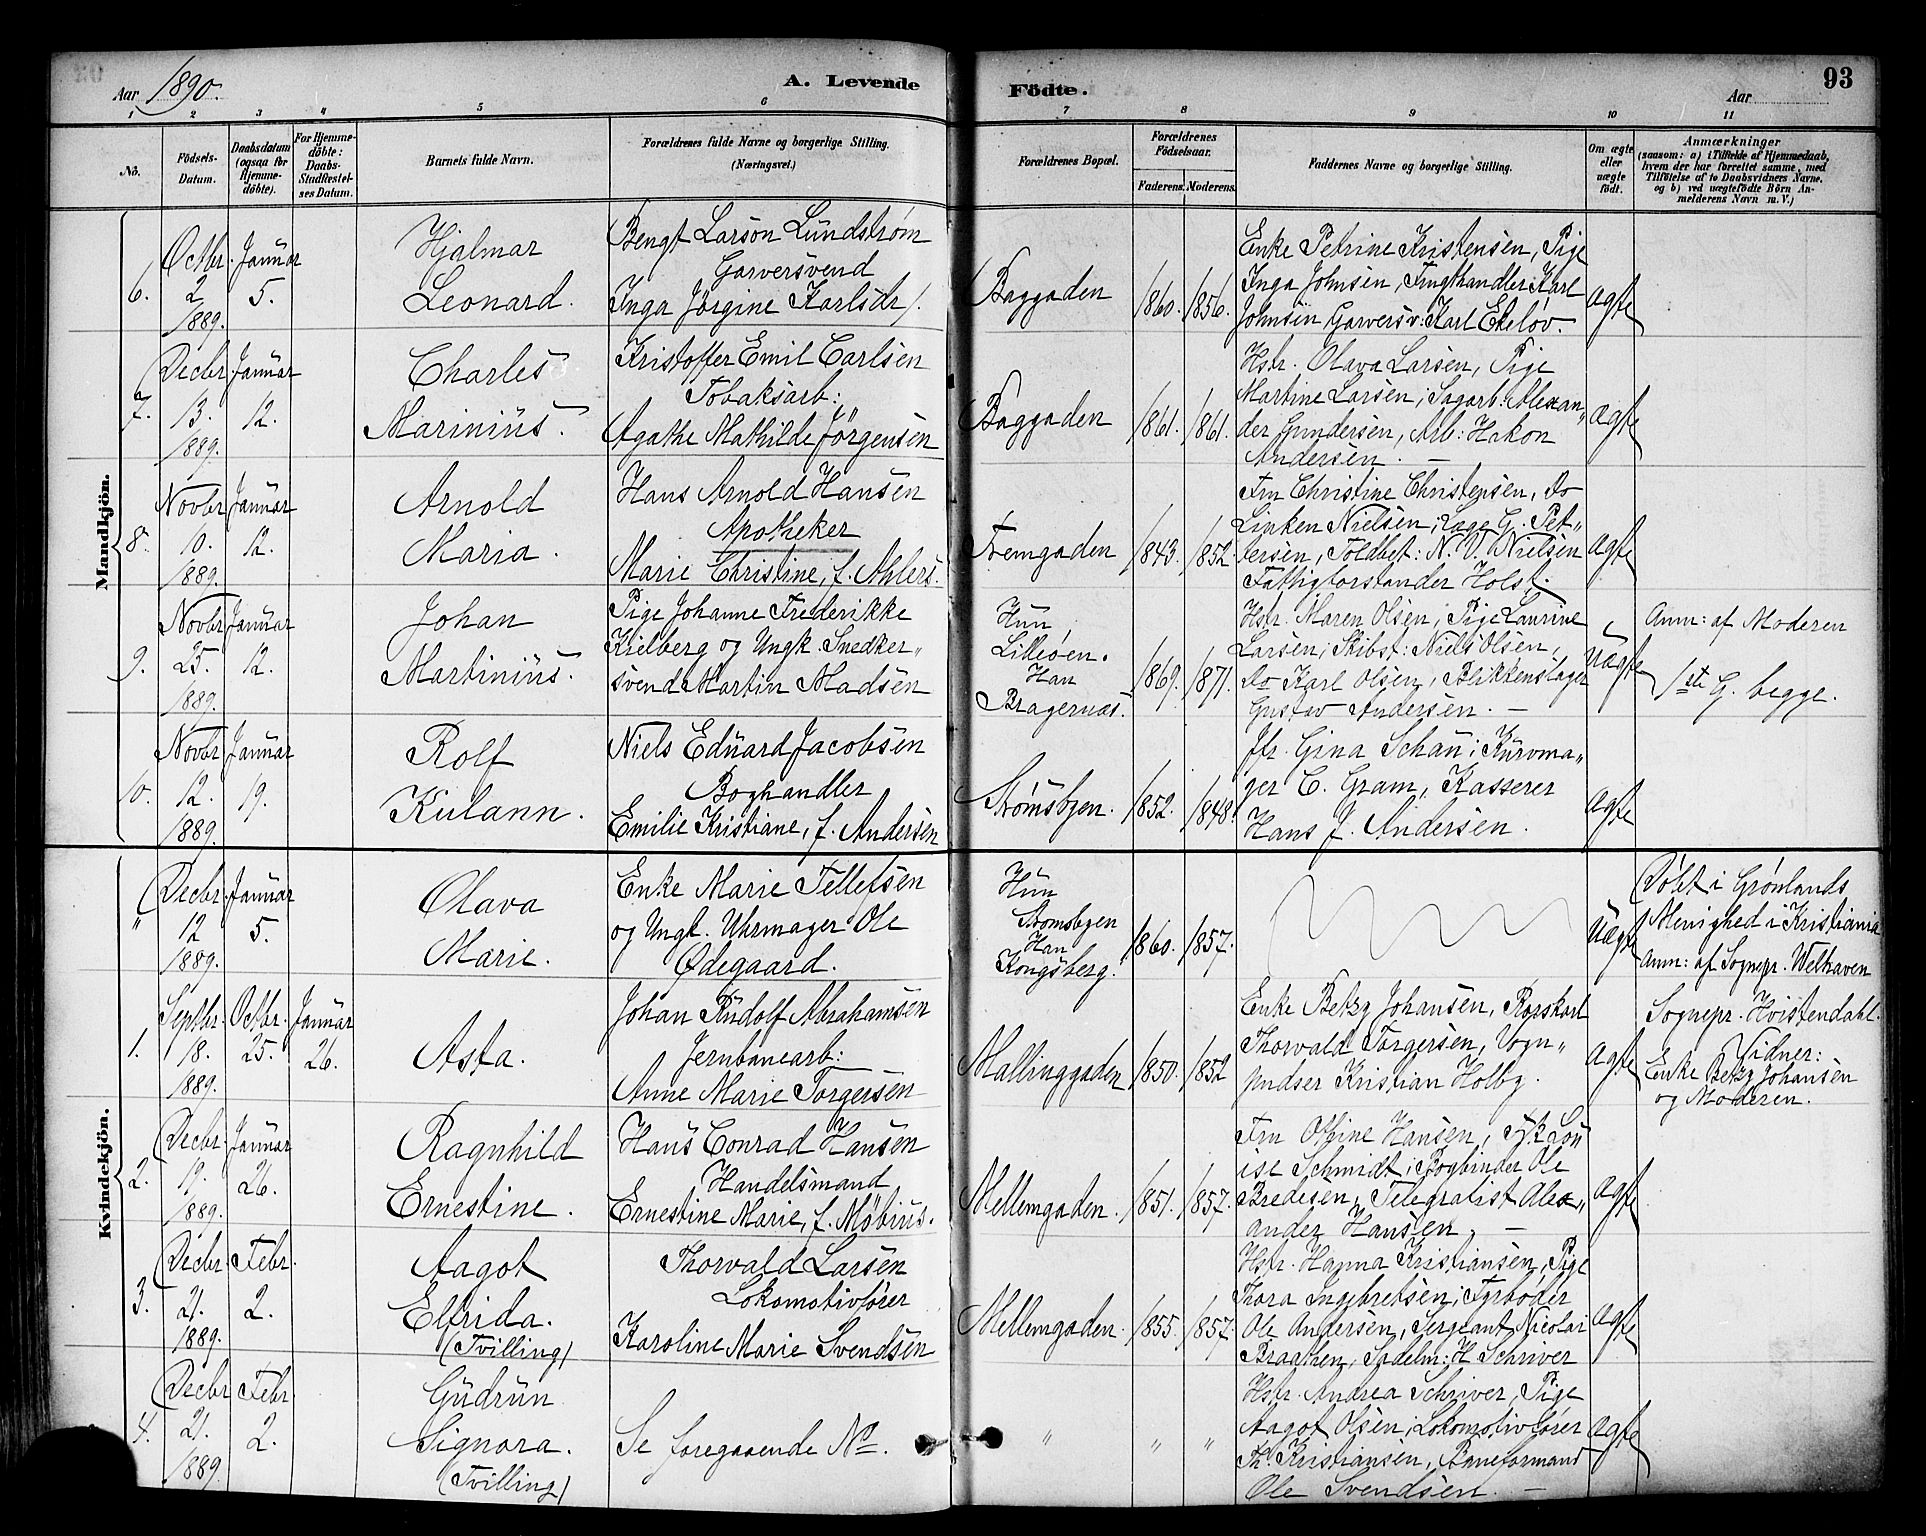 Aar 1890.
A. Levende
Födte.
Aar
93
1 2 3 4 5 6 7 8 9 10 11
No.
Födsels-
Datum.
Daabsdatum
(ogsaa for
Hjemme-
döbte).
For Hjemme-
döbte:
Daabs-
Stadfæstel-
ses Datum.
Barnets fulde Navn.
Forældrenes fulde Navne og borgerlige Stilling.
(Næringsvei.)
Forældrenes Bopæl.
Forældrenes
Födselsaar.
Faderens. Moderens.
Faddernes Navne og borgerlige Stilling.
Om ægte
eller
uægte
født.
Anmærkninger
(saasom: a) i Tilfælde af Hjemmedaab,
hvem der har forrettet samme, med
Tilføielse af to Daabsvidners Navne,
og b) ved uægtefödte Börn An-
melderens Navn m. V.)
Mandkjön.
6.
Octbr.
2
1889.
Januar
5.
Hjalmar
Leonard.
Bengt Larson Lundstrøm
Garversvend
Inga Jörgine Karlsdr.
Baggaden
1860. 1856.
Enke Petrine Kristensen, Pige
Inga Johnsen, Frugthandler Karl
Johnsen, Garversv: Karl Ekeløv.
ægte
7.
Decbr.
13.
1889.
Januar
12.
Charles
Marinius.
Kristoffer Emil Carlsen
Tobaksarb:
Agathe Mathilde Jörgensen
Baggaden
1861. 1861.
Hstr. Olava Larsen, Pige
Martine Larsen; Sagarb: Alexan„
der Gundersen, Arb: Hakon
Andersen. —
ægte
8.
Novbr
10.
1889.
Januar
12.
Arnold
Maria.
Hans Arnold Hansen
Apotheker
Marie Christine, f. Ahlers.
Tremgaden
1843. 1852.
Fru Christine Christensen, Do
Linken Nielsen; Læge G. Pet„
tersen, Toldbet: N. V. Nielsen
Fattigforstander Holst.
ægte
9.
Novbr
25.
1889.
Januar
12.
Johan
Martinius.
Pige Johanne Frederikke
Kielberg og Ungk. Snedker„
svend Martin Madsen
Hun,
Lilleøen.
Han
Bragernæs.
1869. 1871.
Hstr. Maren Olsen, Pige Laurine
Larsen; Skibst: Niels Olsen,
Do Karl Olsen, Blikkenslager
Gustav Andersen. —
Uægte
Anm: af Moderen
1ste G. begge.
10.
Novbr
12.
1889.
Januar
19.
Rolf
Kulann.
Niels Eduard Jacobsen
Boghandler
Emilie Kristiane, f. Andersen
Strømsbyen.
1852. 1848.
Jfr. Gina Schau; Kurvma„
ger C. Gram, Kasserer
Hans J. Andersen.
ægte
Kvindekjön.
"
Decbr.
12
1889.
Januar
5.
Olava
Marie.
Enke Marie Tellefsen
og Ungk. Uhrmager Ole
Ødegaard.
Hun
Strømsbyen
Han
Kongsberg.
1860. 1857.
Uægte
Døbt i Grønlands
Menighed i Kristiania
Anm: af Sognepr. Welhaven
1.
Septbr.
18.
1889.
Octbr.
25.
Januar
26.
Asta.
Johan Rudolf Abrahamsen
Jernbanearb:
Anne Marie Torgersen
Mallinggaden
1850. 1852
Enke Betzy Johansen, Rorskarl
Thorvald Torgersen, Vogn„
pudser Kristian Holby.
ægte
Sognepr. Hvistendahl.
Vidner:
Enke Betzy Johansen
og Moderen.
2.
Decbr.
19.
1889.
Januar
26.
Ragnhild
Ernestine.
Hans Conrad Hansen
Handelsmand
Ernestine Marie, f. Møbius.
Mellemgaden.
1851. 1857.
Fru Othine Hansen, Frk Lou
ise Schmidt; Bogbinder Ole
Bredesen, Telegrafist Alex„
ander Hansen. —
ægte
3.
Decbr.
21.
1889.
Febr.
2.
Aagot
Elfrida.
(Tvilling)
Thorvald Larsen
Lokomotivfører
Karoline Marie Svendsen
Mellemgaden.
1855. 1857.
Hstr. Hanna Kristiansen, Pige
Thora Ingebretsen; Fyrbøder
Ole Andersen, Sergeant Nicolai
Braathen, Sadelm: H. Schriver
ægte
4.
Decbr
21.
1889.
Febr
2.
Gudrun
Signora.
(Tvilling)
Se foregaaende No.
" " "
Hstr. Andrea Schriver, Pige
Aagot Olsen; Lokomotivfører
Th. Kristiansen, Baneformand
Ole Svendsen. —
ægte